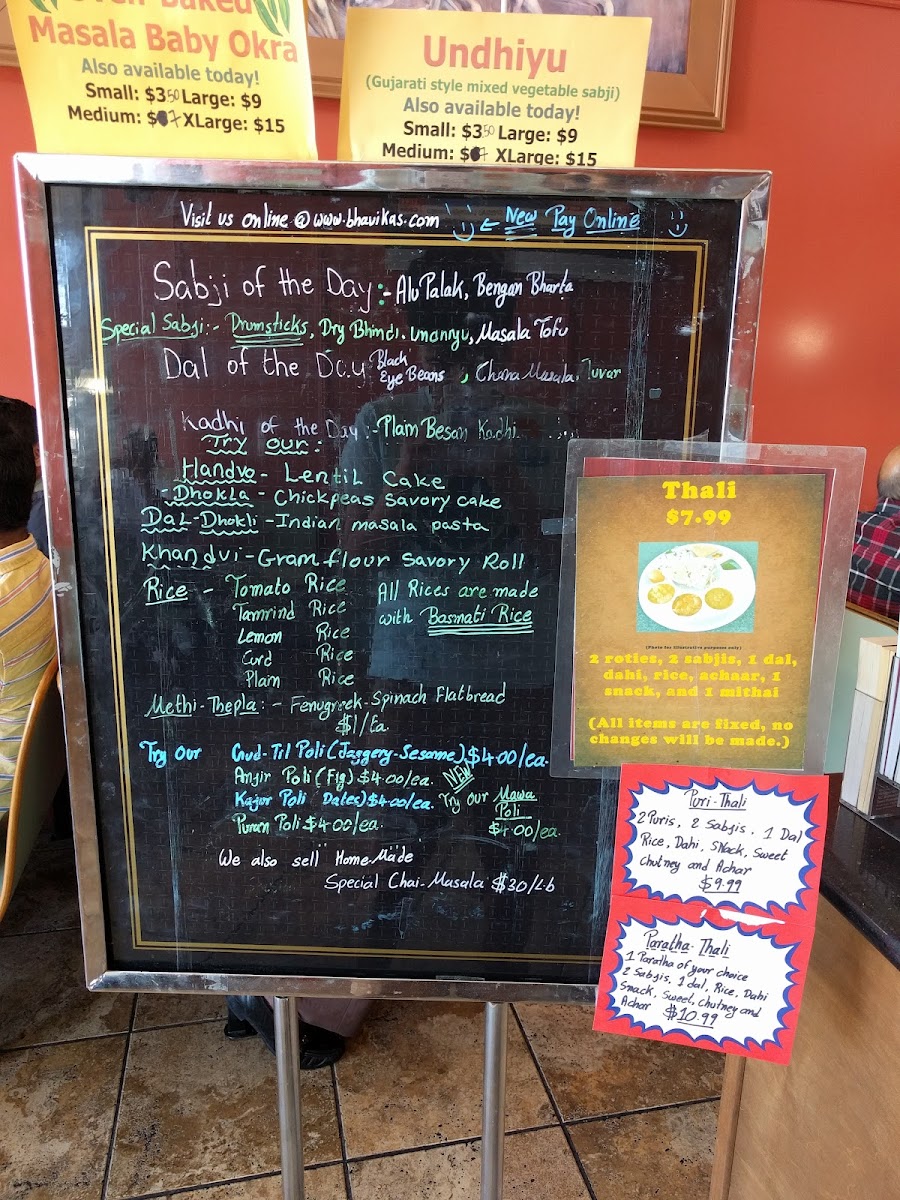 Baked
Masala Baby Okra
Also available today!
Small: $3.50 Large: $9
Medium: $7 XLarge: $15
Undhiyu
(Gujarati style mixed vegetable sabji)
Also available today!
Small: $3.50 Large: $9
Medium: $7 XLarge: $15
Visit us online @ www.bhavikas.com ← New Pay Online
Sabji of the Day:- Alu Palak, Bengan Bharta
Special Sabji:- Drumsticks, Dry Bhindi, Masala Tofu
Dal of the Day Black Eye Beans, Chana Masala, Tuvar
Kadhi of the Day:- Plam Besan Kadhi
Try our:
Handvo - Lentil Cake
-Dhokla - Chickpeas Savory cake
Dal-Dhokli - Indian masala pasta
Khandvi - Gram flour Savory Roll
Rice - Tomato Rice
Tamrind Rice
Lemon Rice
Curd Rice
Plain Rice
All Rices are made
with Basmati Rice
Methi-Thepla: - Fenugreek-Spinach Flatbread
$1/Ea.
Try Our Gud-Til Poli (Jaggery-Sesame) $4.00/ea.
Anjir Poli (Fig) $4.00/ea.
Kajur Poli (Dates) $4.00/ea.
Puran Poli $4.00/ea.
NEW
Try Our Mawa
Poli
$4.00/ea.
We also sell Home Made
Special Chai-Masala $30/Lb
Thali
$7.99
(Photo for illustrative purposes only)
2 roties, 2 sabjis, 1 dal,
dahi, rice, achaar, 1
snack, and 1 mithai
(All items are fixed, no
changes will be made.)
Puri-Thali
2 Puris, 2 Sabjis, 1 Dal
Rice, Dahi, Snack, Sweet
chutney and Achar
$9.99
Paratha-Thali
1 Paratha of your choice
2 Sabjis, 1 dal, Rice, Dahi
Snack, Sweet, chutney and
Achar $10.99